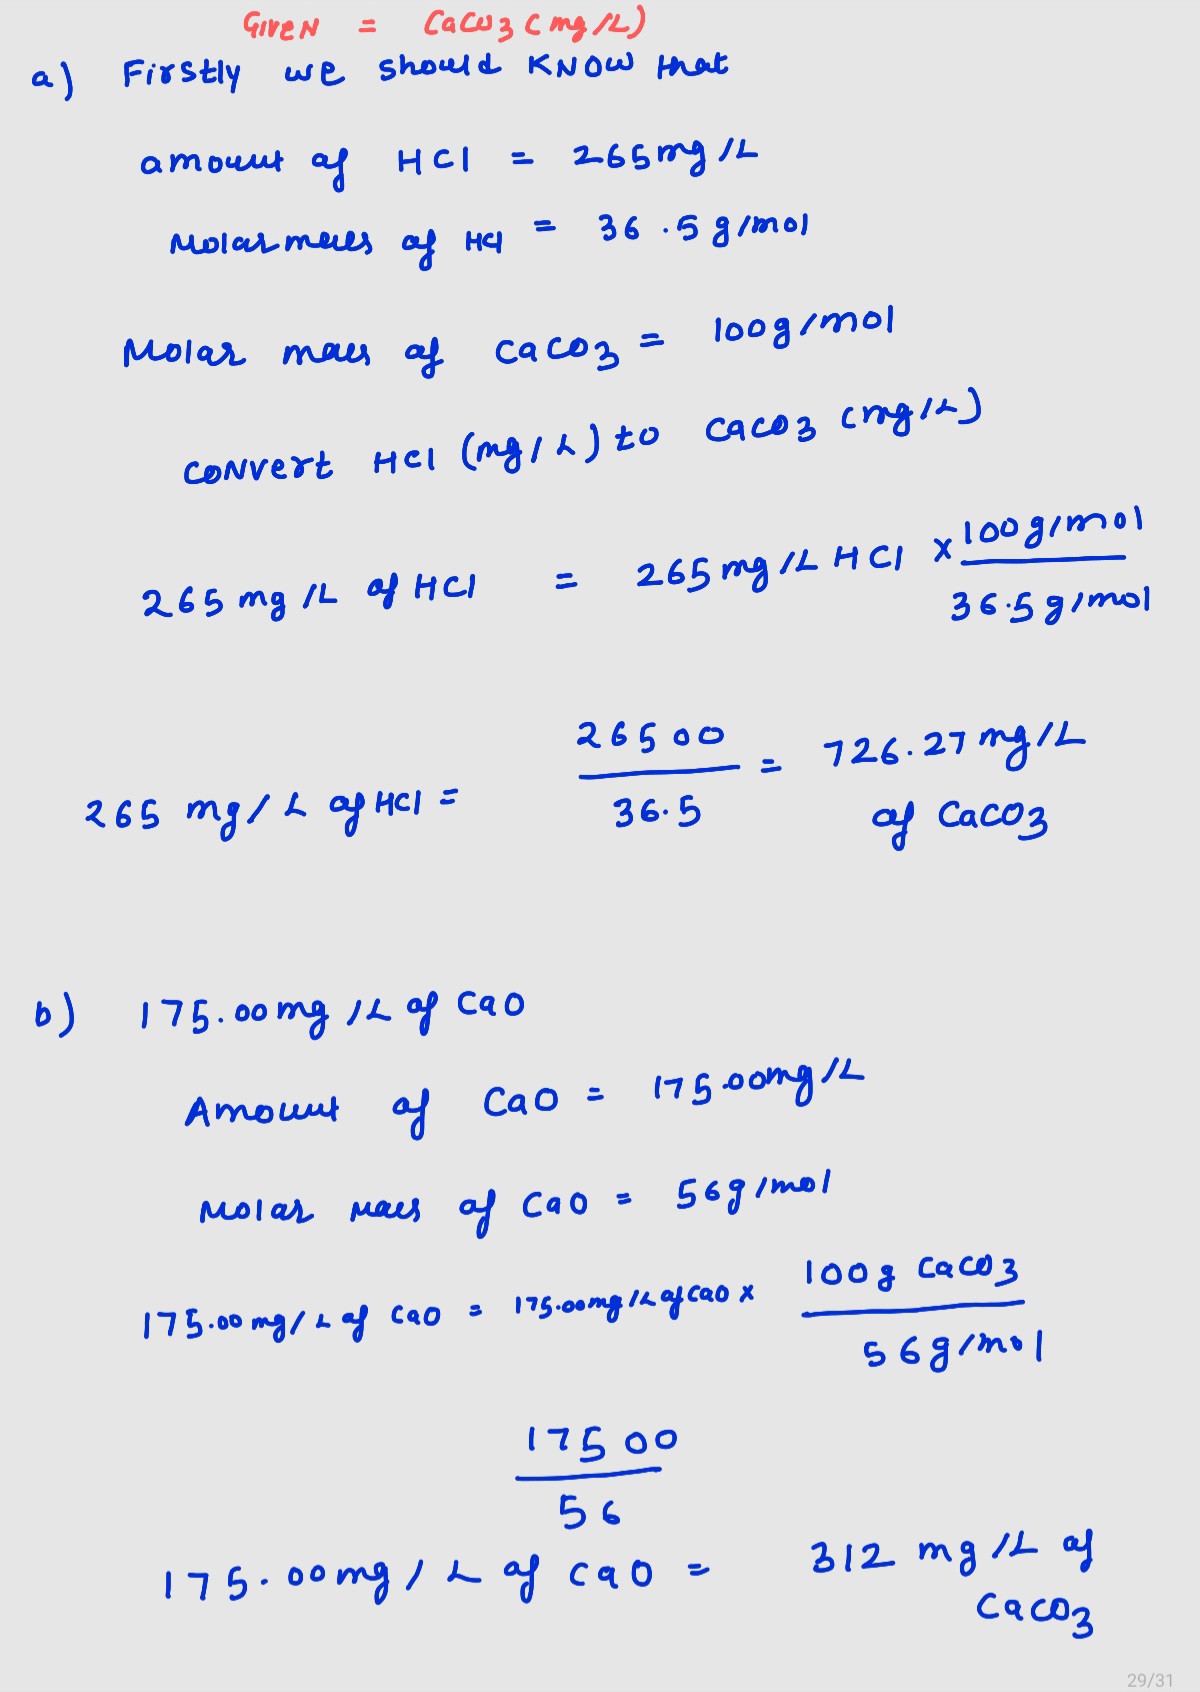 Given = CaCO3 (mg/L)
a) Firstly we should know that
amount of HCl = 265mg/L
Molarmass of HCl = 36.5 g/mol
Molar mass of CaCO3 = 100g/mol
convert HCl (mg/L) to CaCO3 (mg/L)
265 mg/L of HCl = 265 mg/L HCl × 100g/mol
36.5 g/mol
26500
265 mg/L of HCl = 36.5 = 726.27 mg/L
of CaCO3
b) 175.00mg/L of CaO
Amount of CaO = 175.00mg/L
Molar mass of CaO = 56g/mol
175.00mg/L of CaO = 175.00mg/L of CaO × 100g CaCO3
56g/mol
17500
56
175.00mg/L of CaO = 312 mg/L of
CaCO3
29/31